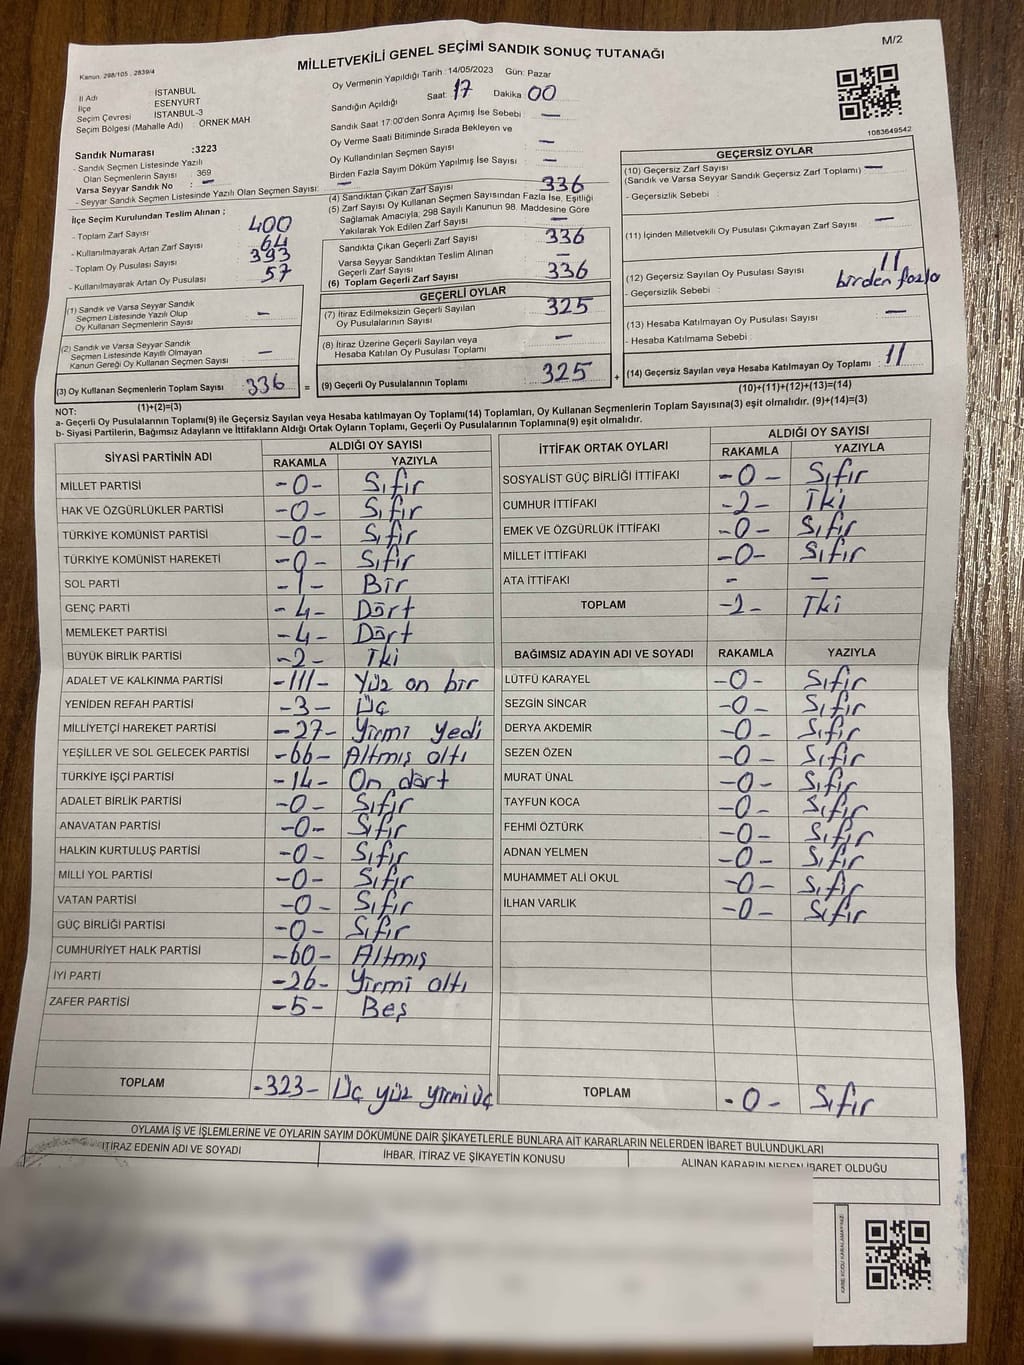 M/2
MİLLETVEKİLİ GENEL SEÇİMİ SANDIK SONUÇ TUTANAĞI
Kanun. 298/105 , 2839/4
İl Adı : İSTANBUL
İlçe ESENYURT
Seçim Çevresi İSTANBUL-3
Seçim Bölgesi (Mahalle Adı) : ÖRNEK MAH
Oy Vermenin Yapıldığı Tarih : 14/05/2023 Gün: Pazar
Sandığın Açıldığı Saat: 17 Dakika 00
Sandık Saat 17:00'den Sonra Açımış İse Sebebi : —
Oy Verme Saati Bitiminde Sırada Bekleyen ve
Oy Kullandırılan Seçmen Sayısı : —
Birden Fazla Sayım Döküm Yapılmış İse Sayısı : —
1083649542
Sandık Numarası :3223
- Sandık Seçmen Listesinde Yazılı
Olan Seçmenlerin Sayısı 369
Varsa Seyyar Sandık No : —
- Seyyar Sandık Seçmen Listesinde Yazılı Olan Seçmen Sayısı: —
İlçe Seçim Kurulundan Teslim Alınan ;
- Toplam Zarf Sayısı 400
- Kullanılmayarak Artan Zarf Sayısı 64
- Toplam Oy Pusulası Sayısı 393
- Kullanılmayarak Artan Oy Pusulası 57
(1) Sandık ve Varsa Seyyar Sandık
Seçmen Listesinde Yazılı Olup
Oy Kullanan Seçmenlerin Sayısı —
(2) Sandık ve Varsa Seyyar Sandık
Seçmen Listesinde Kayıtlı Olmayan
Kanun Gereği Oy Kullanan Seçmen Sayısı —
(3) Oy Kullanan Seçmenlerin Toplam Sayısı : 336 =
(1)+(2)=(3)
(4) Sandıktan Çıkan Zarf Sayısı 336
(5) Zarf Sayısı Oy Kullanan Seçmen Sayısından Fazla İse, Eşitliği
Sağlamak Amacıyla, 298 Sayılı Kanunun 98. Maddesine Göre
Yakılarak Yok Edilen Zarf Sayısı : —
Sandıkta Çıkan Geçerli Zarf Sayısı 336
Varsa Seyyar Sandıktan Teslim Alınan
Geçerli Zarf Sayısı —
(6) Toplam Geçerli Zarf Sayısı 336
GEÇERLİ OYLAR
(7) İtiraz Edilmeksizin Geçerli Sayılan
Oy Pusulalarının Sayısı 325
(8) İtiraz Üzerine Geçerli Sayılan veya
Hesaba Katılan Oy Pusulası Toplamı —
(9) Geçerli Oy Pusulalarının Toplamı 325 +
GEÇERSİZ OYLAR
(10) Geçersiz Zarf Sayısı
(Sandık ve Varsa Seyyar Sandık Geçersiz Zarf Toplamı) —
- Geçersizlik Sebebi :
(11) İçinden Milletvekili Oy Pusulası Çıkmayan Zarf Sayısı —
(12) Geçersiz Sayılan Oy Pusulası Sayısı 11
- Geçersizlik Sebebi : birden fazla
(13) Hesaba Katılmayan Oy Pusulası Sayısı —
- Hesaba Katılmama Sebebi :
(14) Geçersiz Sayılan veya Hesaba Katılmayan Oy Toplamı : 11
(10)+(11)+(12)+(13)=(14)
NOT:
a- Geçerli Oy Pusulalarının Toplamı(9) ile Geçersiz Sayılan veya Hesaba katılmayan Oy Toplamı(14) Toplamları, Oy Kullanan Seçmenlerin Toplam Sayısına(3) eşit olmalıdır. (9)+(14)=(3)
b- Siyasi Partilerin, Bağımsız Adayların ve İttifakların Aldığı Ortak Oyların Toplamı, Geçerli Oy Pusulalarının Toplamına(9) eşit olmalıdır.
SİYASİ PARTİNİN ADI ALDIĞI OY SAYISI
RAKAMLA YAZIYLA
MİLLET PARTİSİ -0- Sıfır
HAK VE ÖZGÜRLÜKLER PARTİSİ -0- Sıfır
TÜRKİYE KOMÜNİST PARTİSİ -0- Sıfır
TÜRKİYE KOMÜNİST HAREKETİ -0- Sıfır
SOL PARTİ -1- Bir
GENÇ PARTİ -4- Dört
MEMLEKET PARTİSİ -4- Dört
BÜYÜK BİRLİK PARTİSİ -2- İki
ADALET VE KALKINMA PARTİSİ -111- Yüz on bir
YENİDEN REFAH PARTİSİ -3- Üç
MİLLİYETÇİ HAREKET PARTİSİ -27- Yirmi yedi
YEŞİLLER VE SOL GELECEK PARTİSİ -66- Altmış altı
TÜRKİYE İŞÇİ PARTİSİ -14- On dört
ADALET BİRLİK PARTİSİ -0- Sıfır
ANAVATAN PARTİSİ -0- Sıfır
HALKIN KURTULUŞ PARTİSİ -0- Sıfır
MİLLİ YOL PARTİSİ -0- Sıfır
VATAN PARTİSİ -0- Sıfır
GÜÇ BİRLİĞİ PARTİSİ -0- Sıfır
CUMHURİYET HALK PARTİSİ -60- Altmış
İYİ PARTİ -26- Yirmi altı
ZAFER PARTİSİ -5- Beş
TOPLAM -323- Üç yüz yirmi üç
İTTİFAK ORTAK OYLARI ALDIĞI OY SAYISI
RAKAMLA YAZIYLA
SOSYALİST GÜÇ BİRLİĞİ İTTİFAKI -0- Sıfır
CUMHUR İTTİFAKI -2- İki
EMEK VE ÖZGÜRLÜK İTTİFAKI -0- Sıfır
MİLLET İTTİFAKI -0- Sıfır
ATA İTTİFAKI - —
TOPLAM -2- İki
BAĞIMSIZ ADAYIN ADI VE SOYADI RAKAMLA YAZIYLA
LÜTFÜ KARAYEL -0- Sıfır
SEZGİN SİNCAR -0- Sıfır
DERYA AKDEMİR -0- Sıfır
SEZEN ÖZEN -0- Sıfır
MURAT ÜNAL -0- Sıfır
TAYFUN KOCA -0- Sıfır
FEHMİ ÖZTÜRK -0- Sıfır
ADNAN YELMEN -0- Sıfır
MUHAMMET ALİ OKUL -0- Sıfır
İLHAN VARLIK -0- Sıfır
TOPLAM -0- Sıfır
OYLAMA İŞ VE İŞLEMLERİNE VE OYLARIN SAYIM DÖKÜMÜNE DAİR ŞİKAYETLERLE BUNLARA AİT KARARLARIN NELERDEN İBARET BULUNDUKLARI
İTİRAZ EDENİN ADI VE SOYADI İHBAR, İTİRAZ VE ŞİKAYETİN KONUSU ALINAN KARARIN NEDEN İBARET OLDUĞU
KARE KODU KARALAMAYINIZ